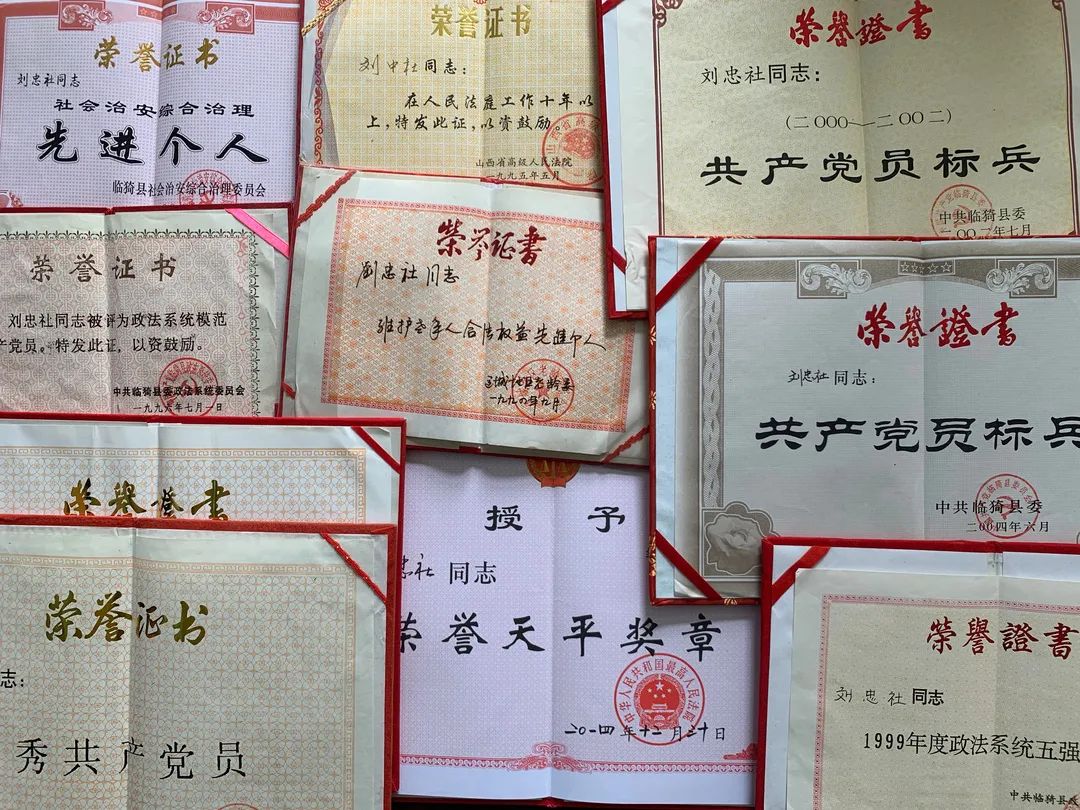 荣誉证书
刘忠社同志
社会治安综合治理
先进个人
临猗县社会治安综合治理委员会
荣誉证书
刘中社同志：
在人民法庭工作十年以
上，特发此证，以资鼓励。
山西省高级人民法院
一九九五年五月
荣譽證書
刘忠社同志：
（二000—二00二）
共产党员标兵
中共临猗县委
二00二年七月
荣誉证书
刘忠社同志被评为政法系统模范
产党员。特发此证，以资鼓励。
中共临猗县委政法系统委员会
一九九六年七月一日
榮誉证書
刘忠社同志
维护老年人合法权益先進个人
一九九〇年九月
榮譽證書
刘忠社同志：
共产党员标兵
中共临猗县委
二00四年六月
榮譽證書
荣誉证书
志：
秀共产党员
授予
忠社同志
荣誉天平奖章
中华人民共和国最高人民法院
二〇一四年十二月三十日
榮譽證書
刘忠社同志
1999年度政法系统五强
中共临猗县